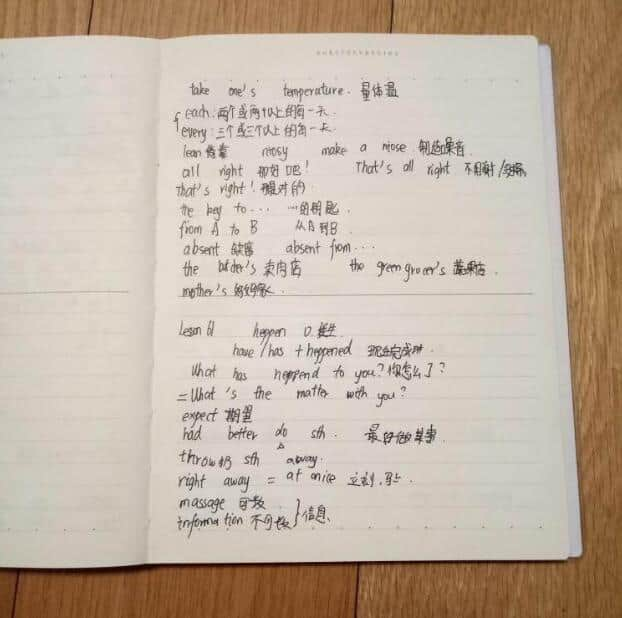 take one's temperature. 量体温
each: 两个或两个以上的每一天.
every: 三个或三个以上的每一天.
lean 倚靠 noisy make a niose 制造噪音
all right 那好吧! That's all right 不用谢/
That's right! 很对的
the key to... ...的钥匙.
from A to B 从A到B
absent 缺席 absent from...
the 卖肉店 the green grocer's 蔬果店
mother's
Lesson 61 heppen 发生
have/has + heppened 现在完成时.
What has heppend to you? 你怎么了?
= What's the matter with you?
expect 期望
had better do sth. 最好做某事
throw 扔 sth away.
right away = at once 立刻,马上
massage 可数
Information 不可数 } 信息